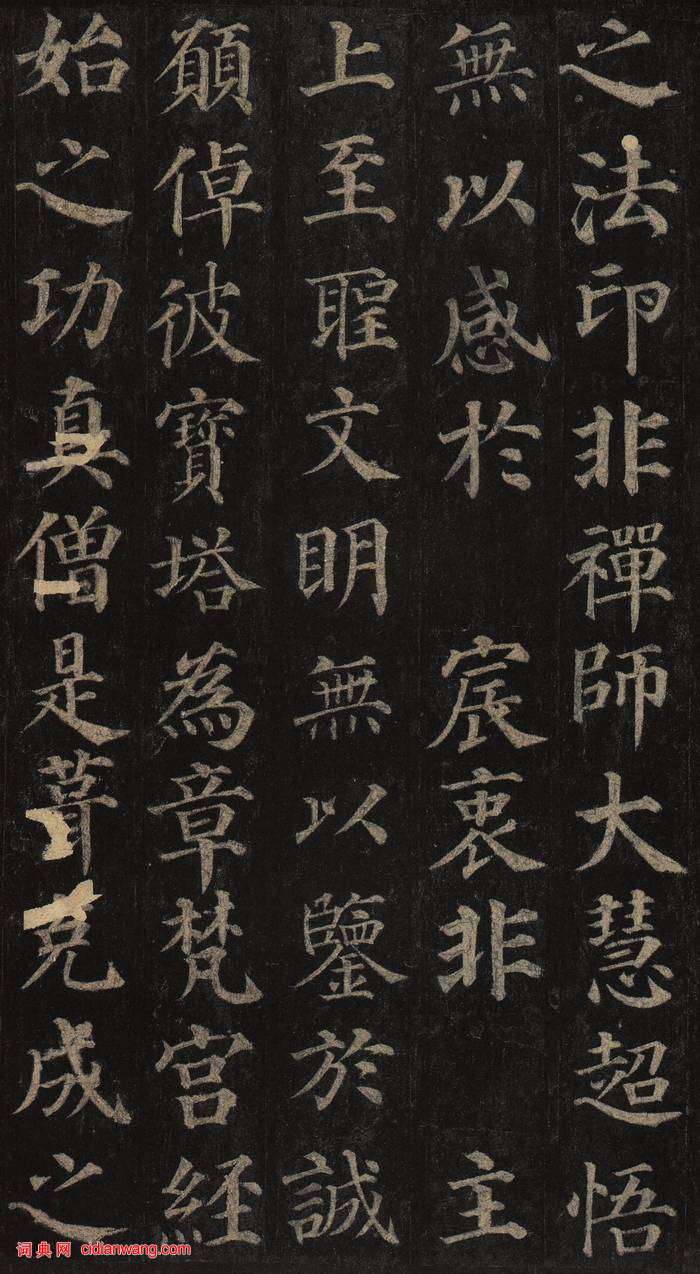 之法印非禪師大慧超悟
無以感於 宸衷非 主
上至聖文明無以鑒於誠
願倬彼寶塔為章梵宮經
始之功真僧是葺克成之
词典网 cidianwang.com